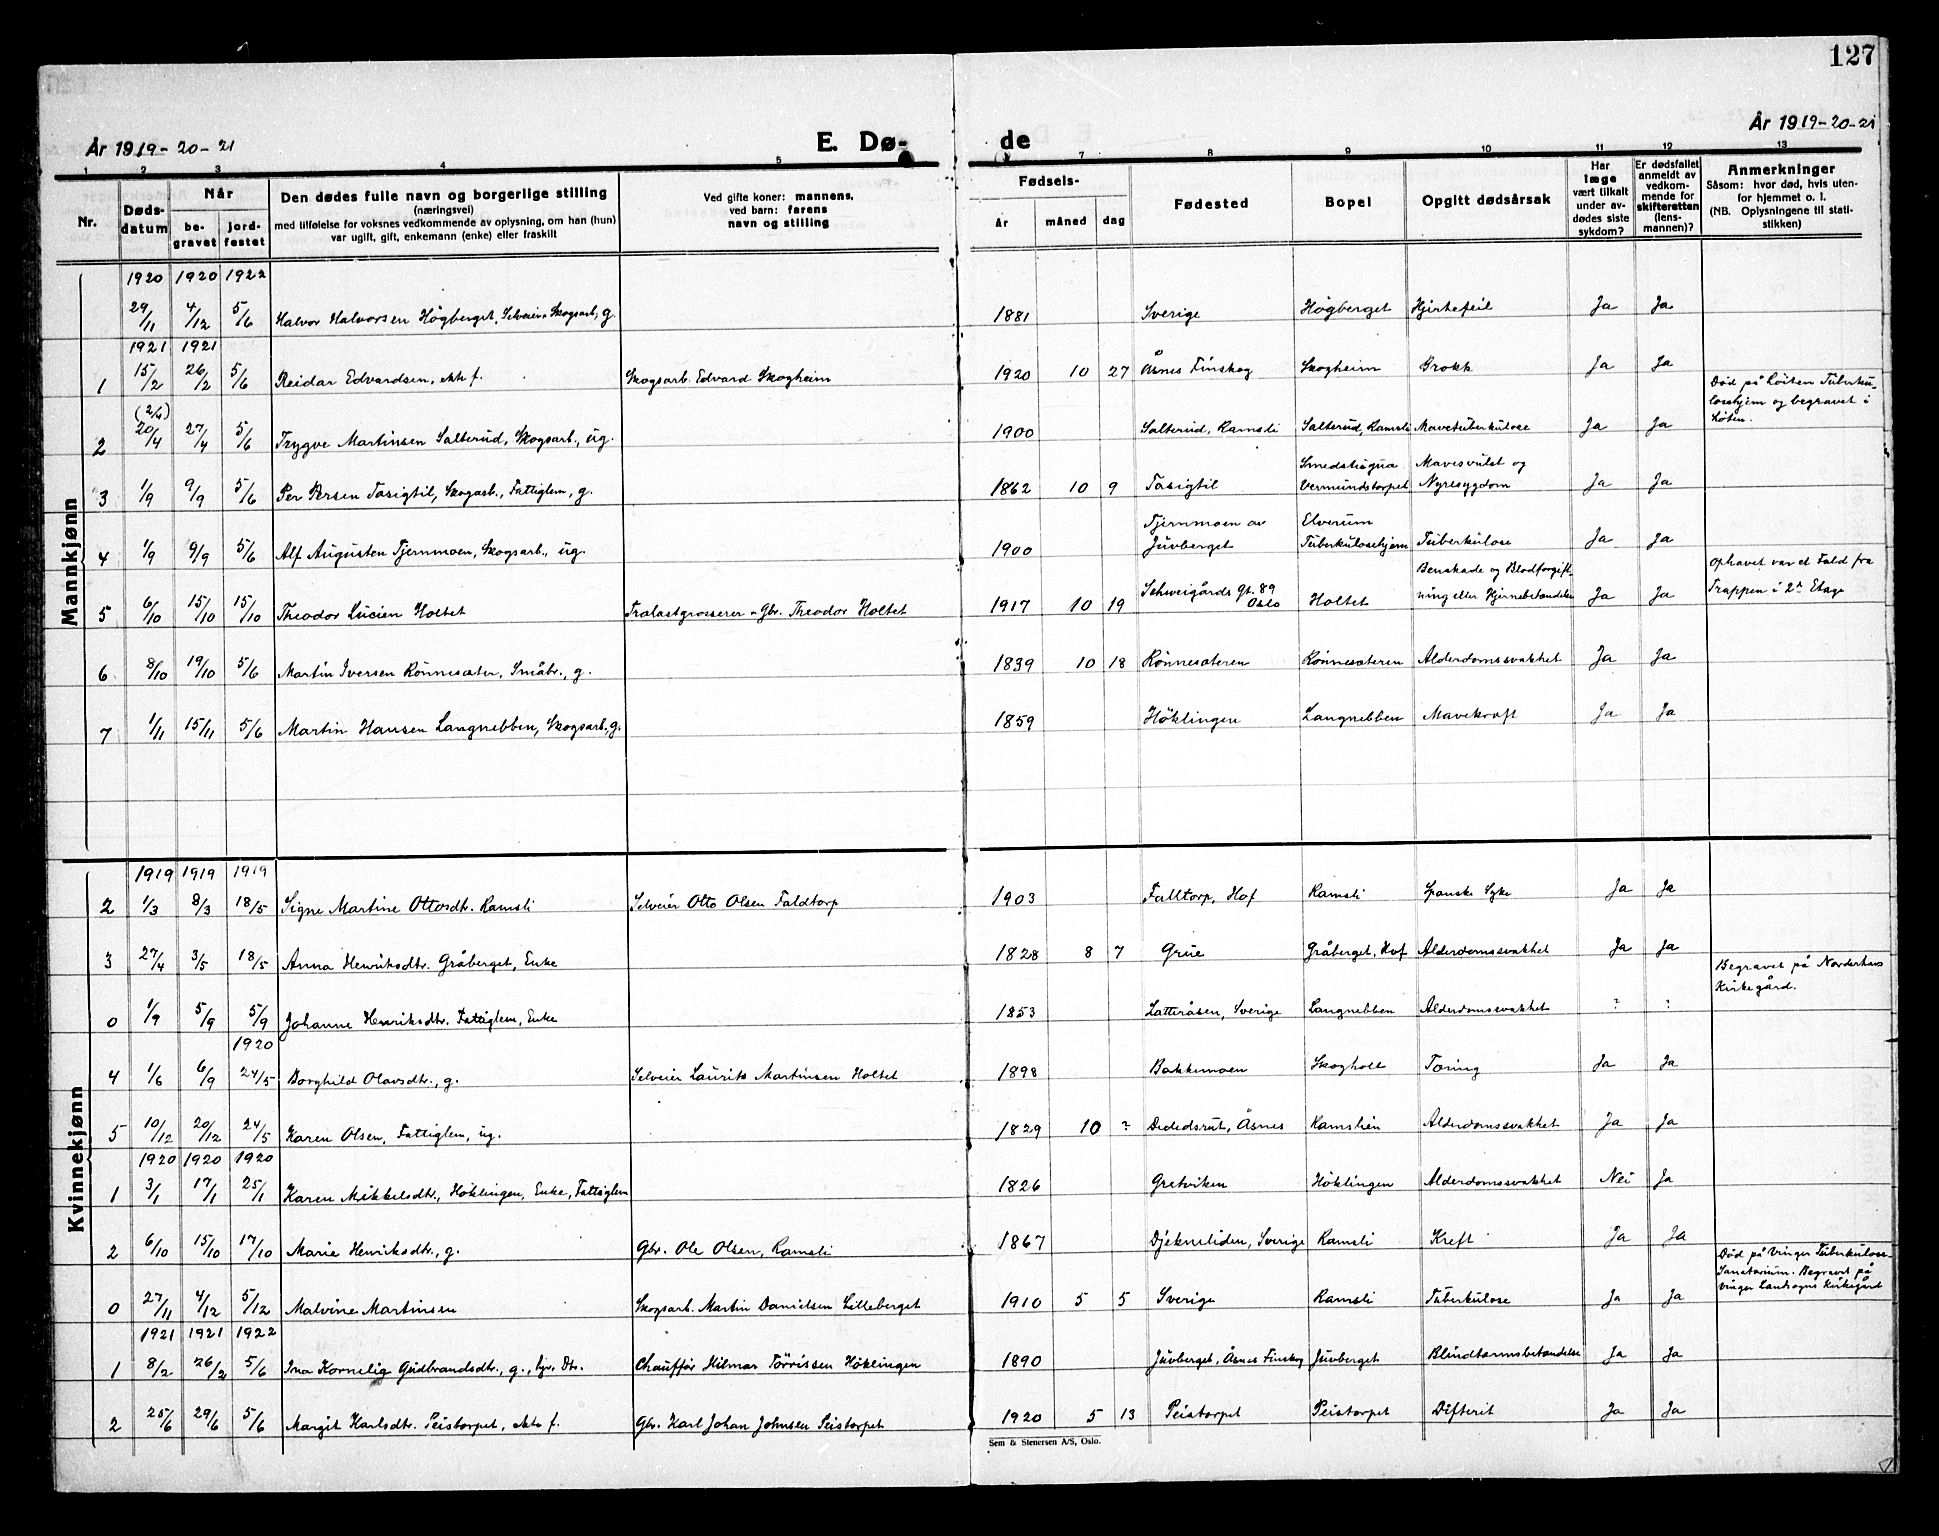 127
År 1919-20-21
E. Dø- de
År 1919-20-21
1 2 3 4 5 7 8 9 10 11 12 13
Nr.
Døds-
datum
Når
be-
gravet
jord-
festet
Den dødes fulle navn og borgerlige stilling
(næringsvei)
med tilføielse for voksnes vedkommende av oplysning, om han (hun)
var ugift, gift, enkemann (enke) eller fraskilt
Ved gifte koner: mannens,
ved barn: farens
navn og stilling
Fødsels-
år måned dag
Fødested
Bopel
Opgitt dødsårsak
Har
læge
vært tilkalt
under av-
dødes siste
sykdom?
Er dødsfallet
anmeldt av
vedkom-
mende for
skifteretten
(lens-
mannen)?
Anmerkninger
Såsom: hvor død, hvis uten-
for hjemmet o. l.
(NB. Oplysningene til stati-
stikken)
Mannkjønn
1920 1920 1922
29/11 4/12 5/6 Halvor Halvorsen Högberget, Selveier Skogsarb, g. 1881 Sverige Högberget Hjertefeil Ja Ja
1921 1921
1 15/2 26/2 5/6 Reidar Edvardsen, ekte f. Skogsarb. Edvard Skogheim 1920 10 27 Åsnes Finskog Skogheim Grokk Ja Ja
Död på Löiten Tüberku-
losehjem og begravet i
Löten.
(2/4)
2 20/4 27/4 5/6 Trygve Martinsen Salterud, Skogsarb., ug. 1900 Salterud, Ramsli Salterud, Ramsli Mavetüberkülose Ja Ja
Smedstugua Mavesvulst og
3 1/9 9/9 5/6 Per Persen Tasigtil, Skogarb., Fattiglem, g. 1862 10 9 Tasigtil Vermundstorpet Nyresygdom Ja Ja
Tjernmoen av Elverum
4 1/9 9/9 5/6 Alf Augusten Tjernmoen, Skogsarb., ug. 1900 Juvberget Tüberkülosehjem Tüberkulose Ja Ja
Benskade og Blodforgift-
Ophavet var et Fald fra
5 6/10 15/10 15/10 Theodor Lucien Holtet Tralastgrosserer - Gbr. Theodor Holtet 1917 10 19 Schweigårds Gt. 89 Oslo Holtet ning eller Hjernebetændelse Ja Ja Trappen i 2n Etage
6 8/10 19/10 5/6 Martin Iversen Rönnesæter, Småbr., g. 1839 10 18 Rönnesæteren Rönnesæteren Alderdomssvakhet Ja Ja
7 1/11 15/11 5/6 Martin Hansen Langnebben, Skogsarb., g. 1859 Höklingen Langnebben Mavekræft Ja Ja
Kvinnekjønn
1919 1919 1919
2 1/3 8/3 18/5 Signe Martine Ottosdt. Ramsli Selveier Otto Olsen Faldtorp 1903 Falltorp, Hof Ramsli Spanske Syke Ja Ja
3 27/4 3/5 18/5 Anna Henriksdtr. Gråberget, Enke 1828 8 7 Grue Gråberget, Hof Alderdomssvakhet Ja Ja
Begravet på Norderhaus
Kirkegård.
0 1/9 5/9 5/9 Johanne Henriksdtr. Fattiglem, Enke 1853 Latteråsen, Sverige Langnebben Alderdomssvakhet ? ?
1920
4 1/6 6/9 24/5 Borghild Olavsdtr., g. Selveier Laurits Martinsen Holtet 1898 Bakkemoen Skogholt Tæring Ja Ja
5 10/12 20/12 24/5 Karen Olsen, Fattiglem, ug. 1829 10 ? Dededsrut, Åsnes Ramslien Alderdomssvakhet Ja Ja
1920 1920 1920
1 3/1 17/1 25/1 Karen Mikkelsdtr., Höklingen, Enke, Fattiglem 1826 Gretviken Höklingen Alderdomssvakhet Nei Ja
2 6/10 15/10 17/10 Marie Henriksdtr., g. Gbr. Ole Olsen, Ramsli 1867 Djekneliden, Sverige Ramsli Kreft Ja Ja
Död på Vinger Tüberkulose-
Sanatorium. Begravet på
Vinger Landsogns Kirkegård
0 27/11 4/12 5/12 Malvine Martinsen Skogsarb. Martin Danielsen Lilleberget 1910 5 5 Sverige Ramsli Tüberkulose Ja Ja
1921 1921 1922
1 8/2 26/2 5/6 Ina Kornelia Gudbrandsdtr., g., Chauffør Hilmar Törrissen Höklingen 1890 Juvberget, Åsnes Finskog Juvberget Blindtarmsbetændelse Ja Ja
2 25/6 29/6 5/6 Margit Karlsdtr. Peistorpet, ekte f. Gbr. Karl Johan Johnsen Peistorpet 1920 5 13 Peistorpet Peistorpet Difterit Ja Ja
Sem & Stenersen A/S, Oslo.